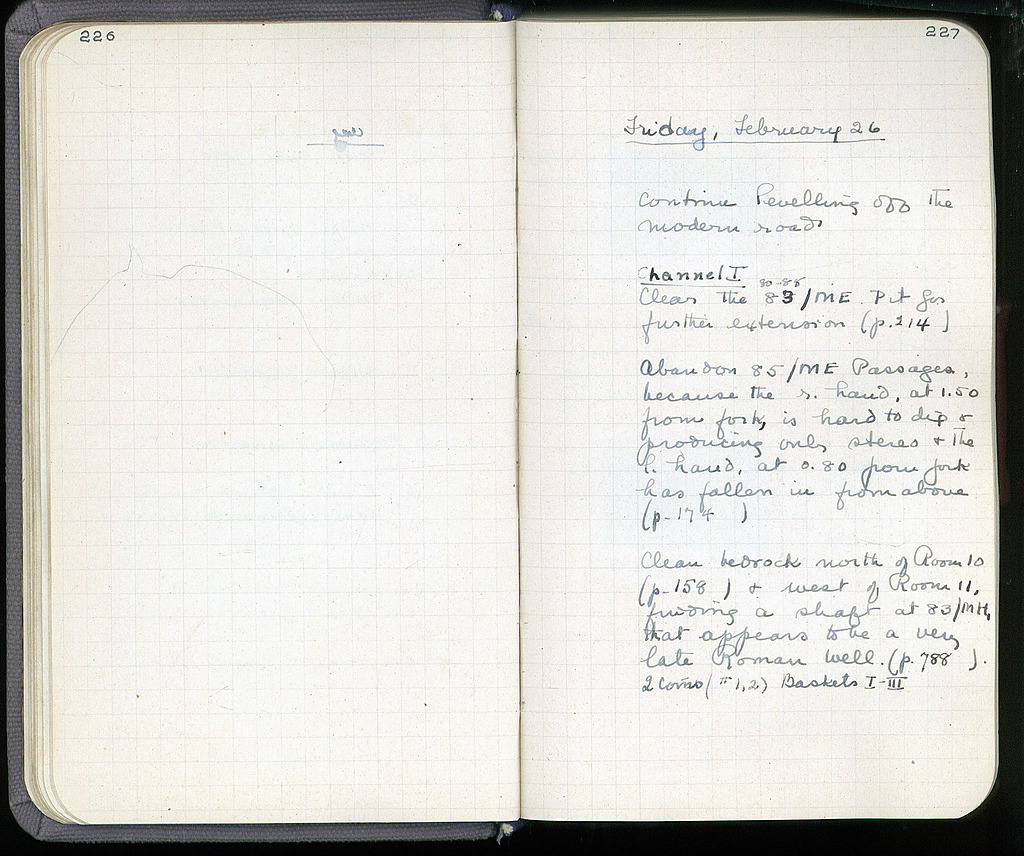 226
227
Friday, February 26
Continue levelling off the
modern road
Channel I
80-88
Clear the 83/ME Pit for
further extension (p. 214 )
Abandon 85/ME Passages,
because the r. hand, at 1.50
from fork, is hard to dig &
producing only stereo & the
l. hand, at 0.80 from fork
has fallen in from above
(p. 174 )
Clean bedrock north of Room 10
(p. 158 ) & west of Room 11,
finding a shaft at 83/MH,
that appears to be a very
late Roman well. (p. 788 ).
2 coins (#1,2) Baskets I-III